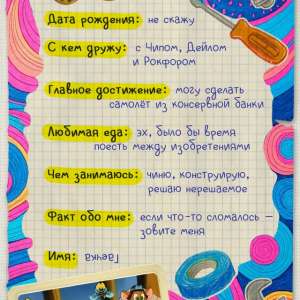 Дата рождения: не скажу
С кем дружу: с Чипом, Дейлом
и Рокфором
Главное достижение: могу сделать
самолёт из консервной банки
Любимая еда: эх, было бы время
поесть между изобретениями
Чем занимаюсь: чиню, конструирую,
решаю нерешаемое
Факт обо мне: если что-то сломалось —
зовите меня
Имя: Гаечка